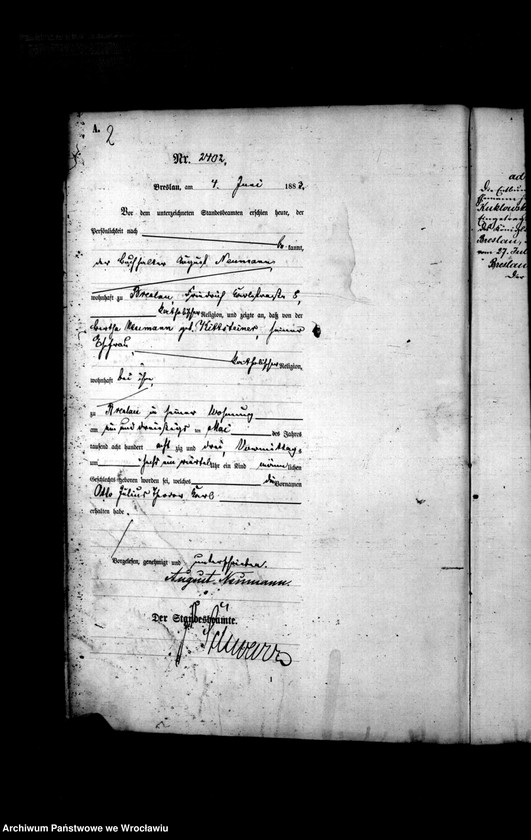 A.
2
Nr. 2402.
Breslau, am 4. Juni 1883.
Vor dem unterzeichneten Standesbeamten erschien heute, der
Persönlichkeit nach
bekannt,
der Buchhalter August Neumann,
wohnhaft zu Breslau, Friedrich Carlstraße 8,
katholischer Religion, und zeigte an, daß von der
Bertha Neumann geb. seiner
Ehefrau,
katholischer Religion,
wohnhaft bei ihm,
zu Breslau in seiner Wohnung
am ein und dreißigsten Mai des Jahres
tausend acht hundert achtzig und drei, Vormittags
um sechs ein viertel Uhr ein Kind männlichen
Geschlechts geboren worden sei, welches die Vornamen
Otto Julius Theodor Carl
erhalten habe.
Vorgelesen, genehmigt und unterschrieben.
August Neumann.
Der Standesbeamte.
Schwarz
1
Breslau,
vom 27. Juli
Breslau
Der
Archiwum Państwowe we Wrocławiu